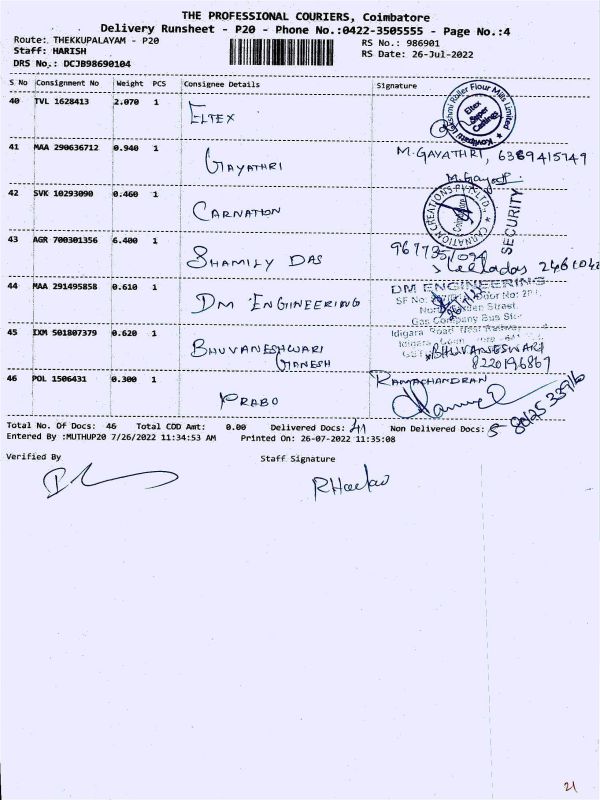 THE PROFESSIONAL COURIERS, Coimbatore
Delivery Runsheet - P20 - Phone No.:0422-3505555 - Page No.:4
Route: THEKKUPALAYAM - P20
Staff: HARISH
DRS No.: DCJB98690104
RS No.: 986901
RS Date: 26-Jul-2022
S No Consignment No Weight PCS Consignee Details Signature
40 TVL 1628413 2.070 1 ELTEX
Lakshmi Roller Flour Mills Limited
Eltex Super Castings
41 MAA 290636712 0.940 1 GAYATHRI M.GAYATHRI, 6369415749
M.Gayathri
42 SVK 10293090 0.460 1 CARNATION
CARNATION CREATIONS PVT. LTD.,
SECURITY
43 AGR 700301356 6.400 1 SHAMILY DAS
44 MAA 291495858 0.610 1 DM ENGINEERING
DM ENGINEERING
SF No: Door No:
Street
Gas Company Bus
Idigara Road
45 IXM 501807379 0.620 1 BHUVANESHWARI GANESH BHUVANESWARI
8220196867
46 POL 1506431 0.300 1 PRABO RAMACHANDRAN
Total No. Of Docs: 46 Total COD Amt: 0.00 Delivered Docs: 41 Non Delivered Docs: 5
Entered By :MUTHUP20 7/26/2022 11:34:53 AM Printed On: 26-07-2022 11:35:08
Verified By Staff Signature
21